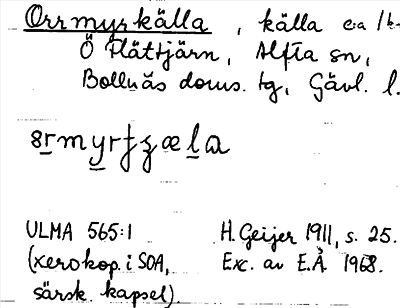 Orrmyrkälla, källa ca 1 k
Ö Flättjärn, Alfta sn,
Bollnäs doms. tg, Gävl. l.
ULMA 565:1
(xerokop. i SOA,
särsk. kapsel).
H. Geijer 1911, s. 25.
Exc. av E.Å. 1968.